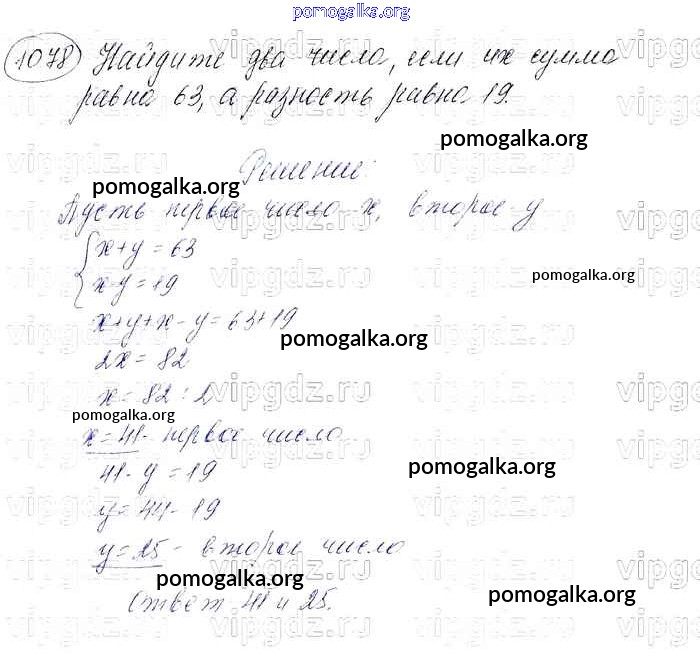 pomogalka.org
1078 Найдите два числа, если их сумма
равна 63, а разность равна 19.
pomogalka.org
Решение:
pomogalka.org
Пусть первое число x, второе - y
x+y = 63
x-y = 19
pomogalka.org
x+y+x-y = 63+19
pomogalka.org
2x = 82
x = 82 : 2
pomogalka.org
x = 41 - первое число
41 - y = 19
pomogalka.org
y = 44 - 19
y = 25 - второе число
pomogalka.org
Ответ 41 и 25.
pomogalka.org
vipgdz.ru